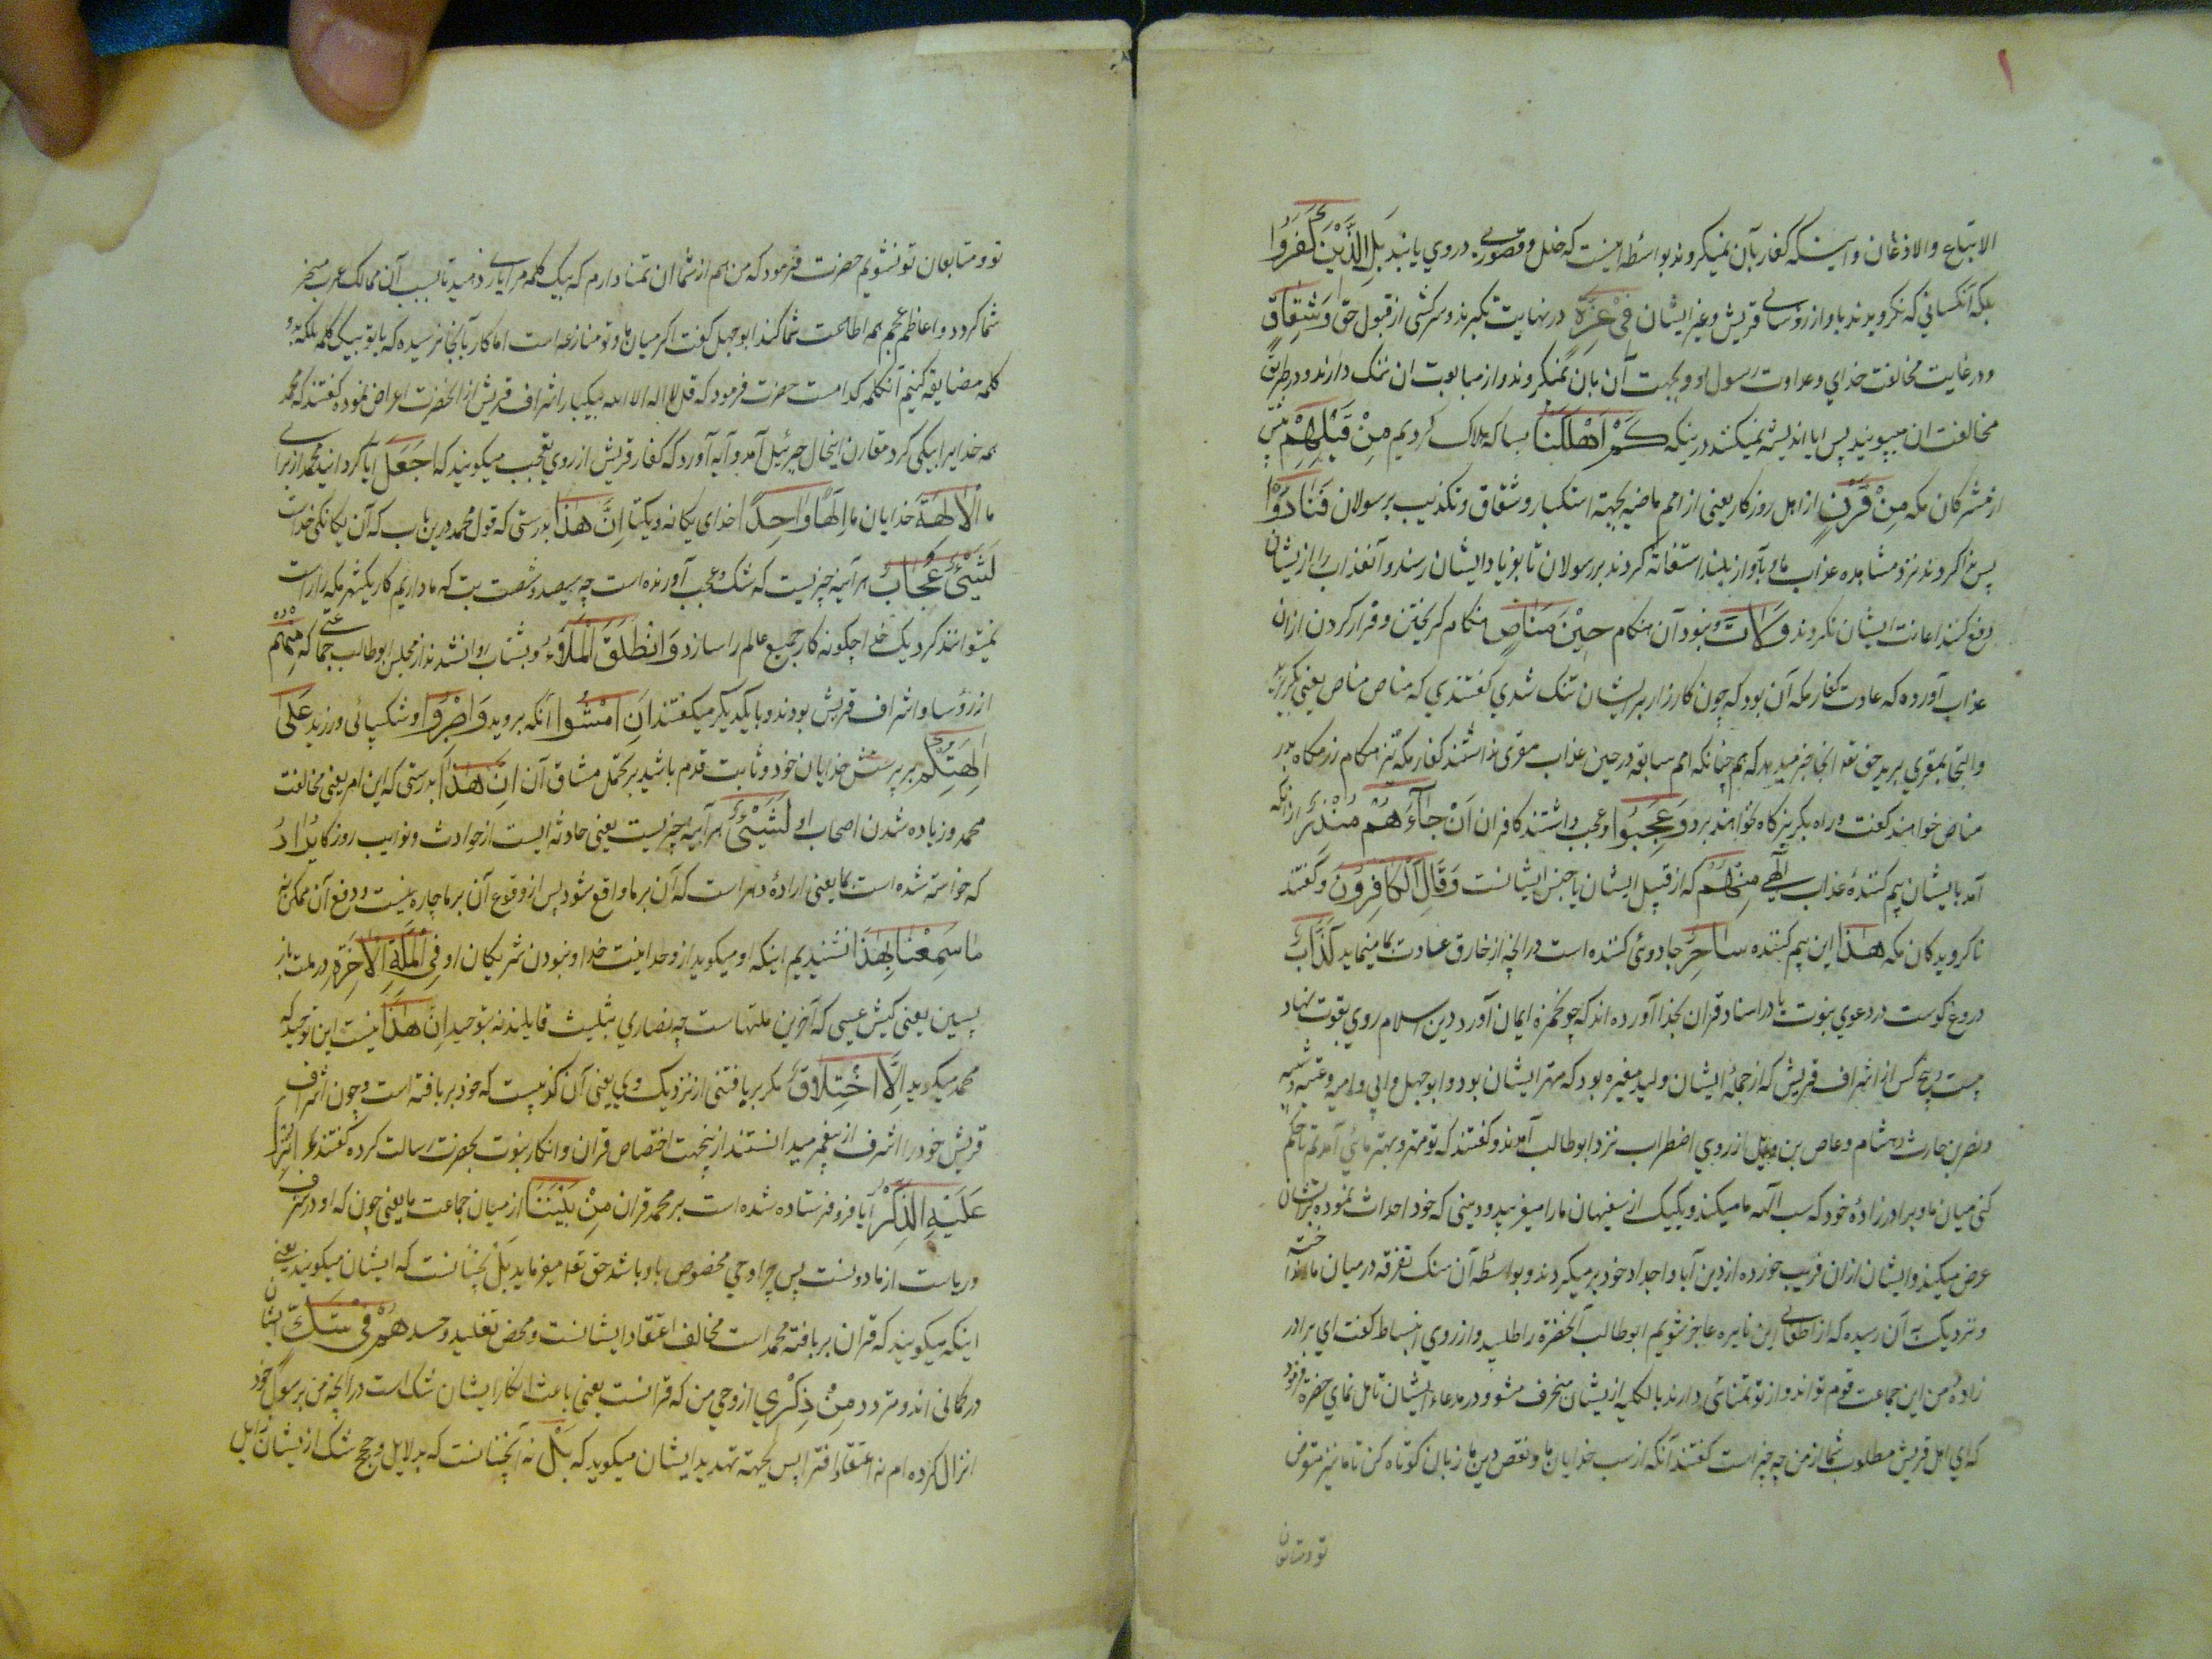 الاتباع والاذعان واینکه کفار بآن نمیکروند بواسطه اینست که خلل و قصوری در وی یابند بَلِ الَّذِیْنَ کَفَرُوْا
بلکه آنکسانی که نکرویدند باو از رؤسای قریش و غیر ایشان فِیْ عِزَّةٍ در نهایت تکبرند و سرکشی از قبول حق وَشِقَاقٍ
و در غایت مخالفت خدای و عداوت رسول او و بجهت آن بآن نمیکروند و از متابعت ان ننک دارند و در طریق
مخالفت ان میپویند پس ایا اندیشه نمیکنند درینکه کَمْ اَهْلَکْنَا بسا که هلاک کردیم مِنْ قَبْلِهِمْ پیش
از مشرکان مکه مِنْ قَرْنٍ از اهل روزکار یعنی از امم ماضیه بجهة استکبار و شقاق و تکذیب بر رسولان فَنَادَوْا
پس ندا کردند نزد مشاهده عذاب ما و بآواز بلند استغاثه کردند بر رسولان تا بفریاد ایشان رسند و آنعذاب را از ایشان
دفع کنند اعانت ایشان نکردند وَلَاتَ و نبود آن هنکام حِیْنَ مَنَاصٍ هنکام کریختن و فرار کردن ازان
عذاب آورده که عادت کفار مکه آن بود که چون کارزار بر ایشان تنک شدی کفتندی که مناص مناص یعنی بکریزید
و التجا بمقری برید حق تعه اینجا خبر میدهد که هم چنانکه امم سابقه در حین عذاب مقری نداشتند کفار مکه نیز هنکام رزمکاه بدر
مناص خواهند کفت و راه بکریزکاه نخواهند برد وَعَجِبُوْا و عجب داشتند کافران اَنْ جَاءَهُمْ مُنْذِرٌ ازانکه
آمد بایشان بیم کنندهٔ عذاب الهی مِنْهُمْ که از قبیل ایشان یا جنس ایشانست وَقَالَ الْکَافِرُوْنَ و کفتند
ناکرویدکان مکه هٰذَا این بیم کننده سَاحِرٌ جادوئی کننده است در انچه از خارق عادت بما مینماید کَذَّابٌ
دروغ کوست در دعوی نبوت یا در اسناد قران بخدا آورده اند که چون حمزه ایمان آورد و دین اسلام روی بقوت نهاد
بیست و پنج کس از اشراف قریش که از جملهٔ ایشان ولید مغیره بود که مهتر ایشان بود و ابوجهل و ابی و امیه و عتبه و شیبه
و نضر بن حارث و هشام و عاص بن وایل از روی اضطراب نزد ابوطالب آمدند و کفتند که تو مهتر و بهتر مائی آمدیم تا حکم
کنی میان ما و برادرزادهٔ خود که سب الهه ما میکند و یکیک از سفیهان ما را میفریبد و دینی که خود احداث نموده بر ایشان
عرض میکند و ایشان ازان فریب خورده از دین آبا و اجداد خود بر میکردند و بواسطه آن سنک تفرقه در میان ما انداخته
و نزدیک به آن رسیده که از اطفای این نایره عاجز شویم ابوطالب آنحضرة را طلبید و از روی انبساط کفت ای برادر
زادهٔ من این جماعت قوم تو اند و از تو تمنائی دارند بالکلیه از ایشان منحرف مشو و در مدعاء ایشان تامل نمای حضرة فرمود
که ای اهل قریش مطلوب شما از من چه چیز است کفتند آنکه از سب خدایان ما و نقص دین ما زبان کوتاه کن تا ما نیز متعرض
تو و متابعان
تو و متابعان تو نشویم حضرت فرمود که من هم از شما ان تمنا دارم که بیک کلمه مرا یاری دهید تا بسبب آن ممالک عرب مسخر
شما کردد و اعاظم عجم همه اطاعت شما کنند ابوجهل کفت اکر میان ما و تو منازعه است اما کار بآنجا نرسیده که با تو بیک کلمه بلکه بده
کلمه مضایقه کنیم آنکلمه کدامست حضرت فرمود که قل لا اله الا الله بیکبار اشراف قریش از آنحضرت اعراض نموده کفتند که محمد
همه خدایرا بیکی کرد مقارن اینحال جبرئیل آمد و آیه آورد که کفار قریش از روی تعجب میکویند که اَجَعَلَ ایا کردانید محمد از برای
ما الْاٰلِهَةَ خدایان ما اِلٰهًا وَاحِدًا خدای یکانه و یکتا اِنَّ هٰذَا بدرستی که قول محمد درین باب که آن یکانکی خداست
لَشَیْءٌ عُجَابٌ هر آینه چیزیست که شک و عجب آورنده است چه سیصد و شصت بت که ما داریم کار یکشهر مکه را راست
نمیتوانند کرد یک خدا چکونه کار جمیع عالم را سازد وَانْطَلَقَ الْمَلَاُ و بشتاب روانشدند از مجلس ابوطالب جماعتی که مِنْهُمْ
از رؤسا و اشراف قریش بودند و با یکدیکر میکفتند اَنِ امْشُوْا آنکه بروید وَاصْبِرُوْا و شکیبائی ورزید عَلٰی
اٰلِهَتِکُمْ بر پرستش خدایان خود و ثابت قدم باشید بر تحمل مشاق آن اِنَّ هٰذَا بدرستی که این امر یعنی مخالفت
محمد و زیاده شدن اصحاب او لَشَیْءٌ هر آینه چیزیست یعنی حادثه ایست از حوادث و نوایب روزکار یُرَادُ
که خواسته شده است بما یعنی ارادهٔ دهر است که آن بر ما واقع شود پس از وقوع آن بر ما چاره نیست و دفع آن ممکن نه
مَا سَمِعْنَا بِهٰذَا نشنیدیم اینکه او میکوید از وحدانیت خدا و نبودن شریکان او فِی الْمِلَّةِ الْاٰخِرَةِ در ملت باز
پسین یعنی کیش عیسی که آخرین ملتهاست چه نصاری بتثلیث قایلند نه بتوحید اِنْ هٰذَا نیست این توحید که
محمد میکوید اِلَّا اخْتِلَاقٌ مکر بربافتنی از نزدیک وی یعنی آن کذبیست که خود بربافته است و چون اشراف
قریش خود را اشرف از پیغمبر میدانستند ازینجهت اختصاص قران و انکار نبوت بحضرت رسالت کرده کفتند که اَاُنْزِلَ
عَلَیْهِ الذِّکْرُ آیا فرو فرستاده شده است بر محمد قران مِنْ بَیْنِنَا از میان جماعت ما یعنی چون که او در شرف
و ریاست از ما دونست پس چرا وحی مخصوص باو باشد حق تعه میفرماید بَلْ نچنانست که ایشان میکویند یعنی
اینکه میکویند که قران بربافتهٔ محمد است مخالف اعتقاد ایشانست و محض تقلید و حسد هُمْ فِیْ شَکٍّ ایشان
در کمانی اند و متردد مِنْ ذِکْرِی از وحی من که قرانست یعنی باعث انکار ایشان شک است در آنچه من بر رسول خود
انزال کرده ام نه اعتقاد افترا پس بجهته تهدید ایشان میکوید که بَلْ نه آنچنانست که بدلایل و حجج شک از ایشان زایل